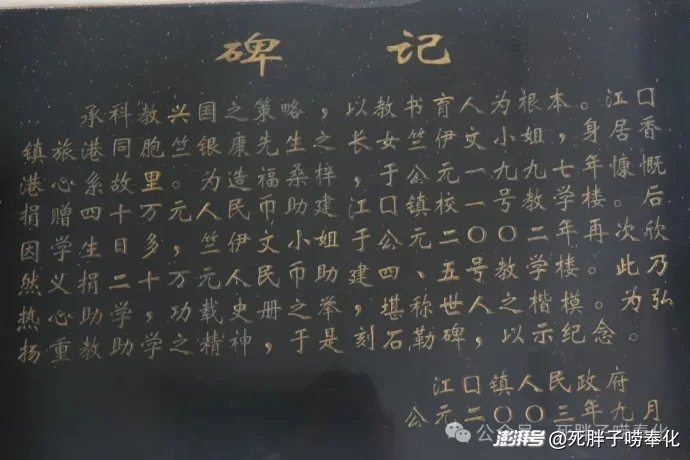 碑 记
承科教兴国之策略，以教书育人为根本。江口
镇旅港同胞竺银康先生之长女竺伊文小姐，身居香
港心系故里。为造福桑梓，于公元一九九七年慷慨
捐赠四十万元人民币助建江口镇校一号教学楼。后
因学生日多，竺伊文小姐于公元二〇〇二年再次欣
然义捐二十万元人民币助建四、五号教学楼。此乃
热心助学，功载史册之举，堪称世人之楷模。为弘
扬重教助学之精神，于是刻石勒碑，以示纪念。
江口镇人民政府
公元二〇〇三年九月
公众号 死胖子唠奉化
澎湃号@死胖子唠奉化